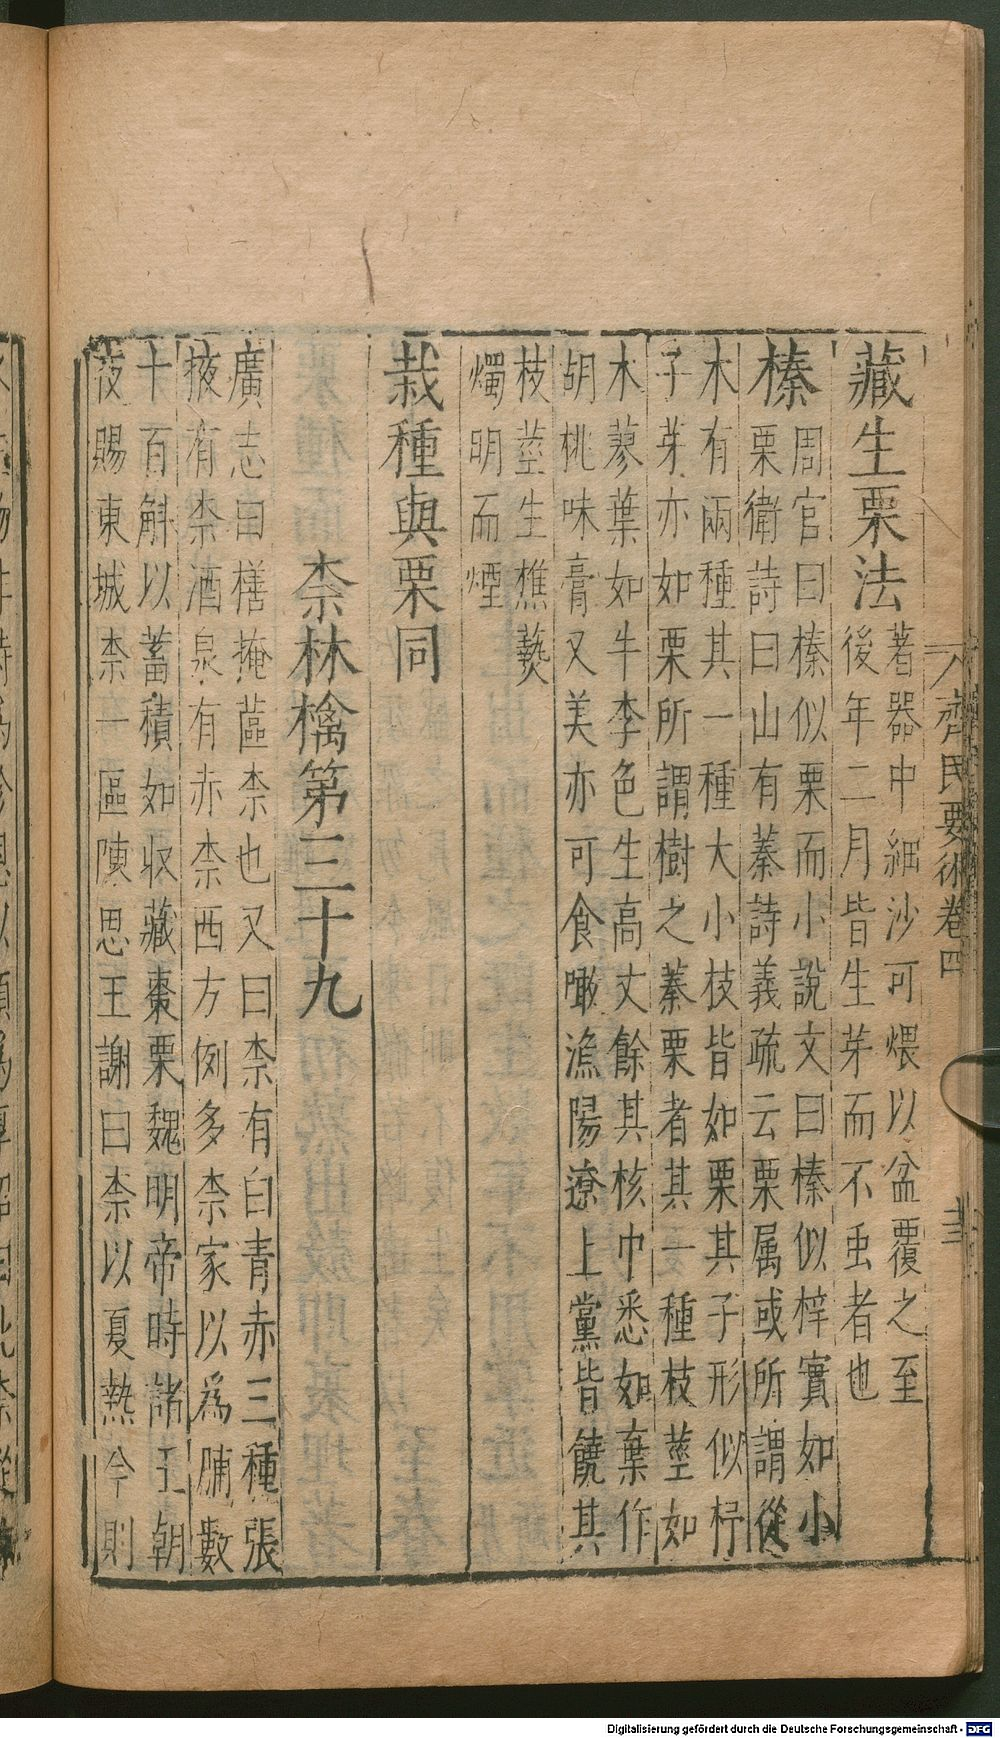 齊民要術卷四
藏生栗法
著器中細沙可煨以盆覆之至
後年二月皆生芽而不虫者也
榛
周官曰榛似栗而小說文曰榛似梓實如小
栗衛詩曰山有蓁詩義疏云栗属或所謂從
木有兩種其一種大小枝皆如栗其子形似杼
子芽亦如栗所謂樹之蓁栗者其一種枝莖如
木蓼葉如牛李色生高丈餘其核中悉如棄作
胡桃味膏又美亦可食噉漁陽遼上黨皆饒其
枝莖生樵爇
燭明而煙
栽種與栗同
柰林檎第三十九
廣志曰橏掩蓲柰也又曰柰有白青赤三種張
掖有柰酒泉有赤柰西方例多柰家以為脯數
十百斛以蓄積如收藏棗栗魏明帝時諸王朝
夜賜東城柰一區陳思王謝曰柰以夏熟今則
Digitalisierung gefördert durch die Deutsche Forschungsgemeinschaft - DFG